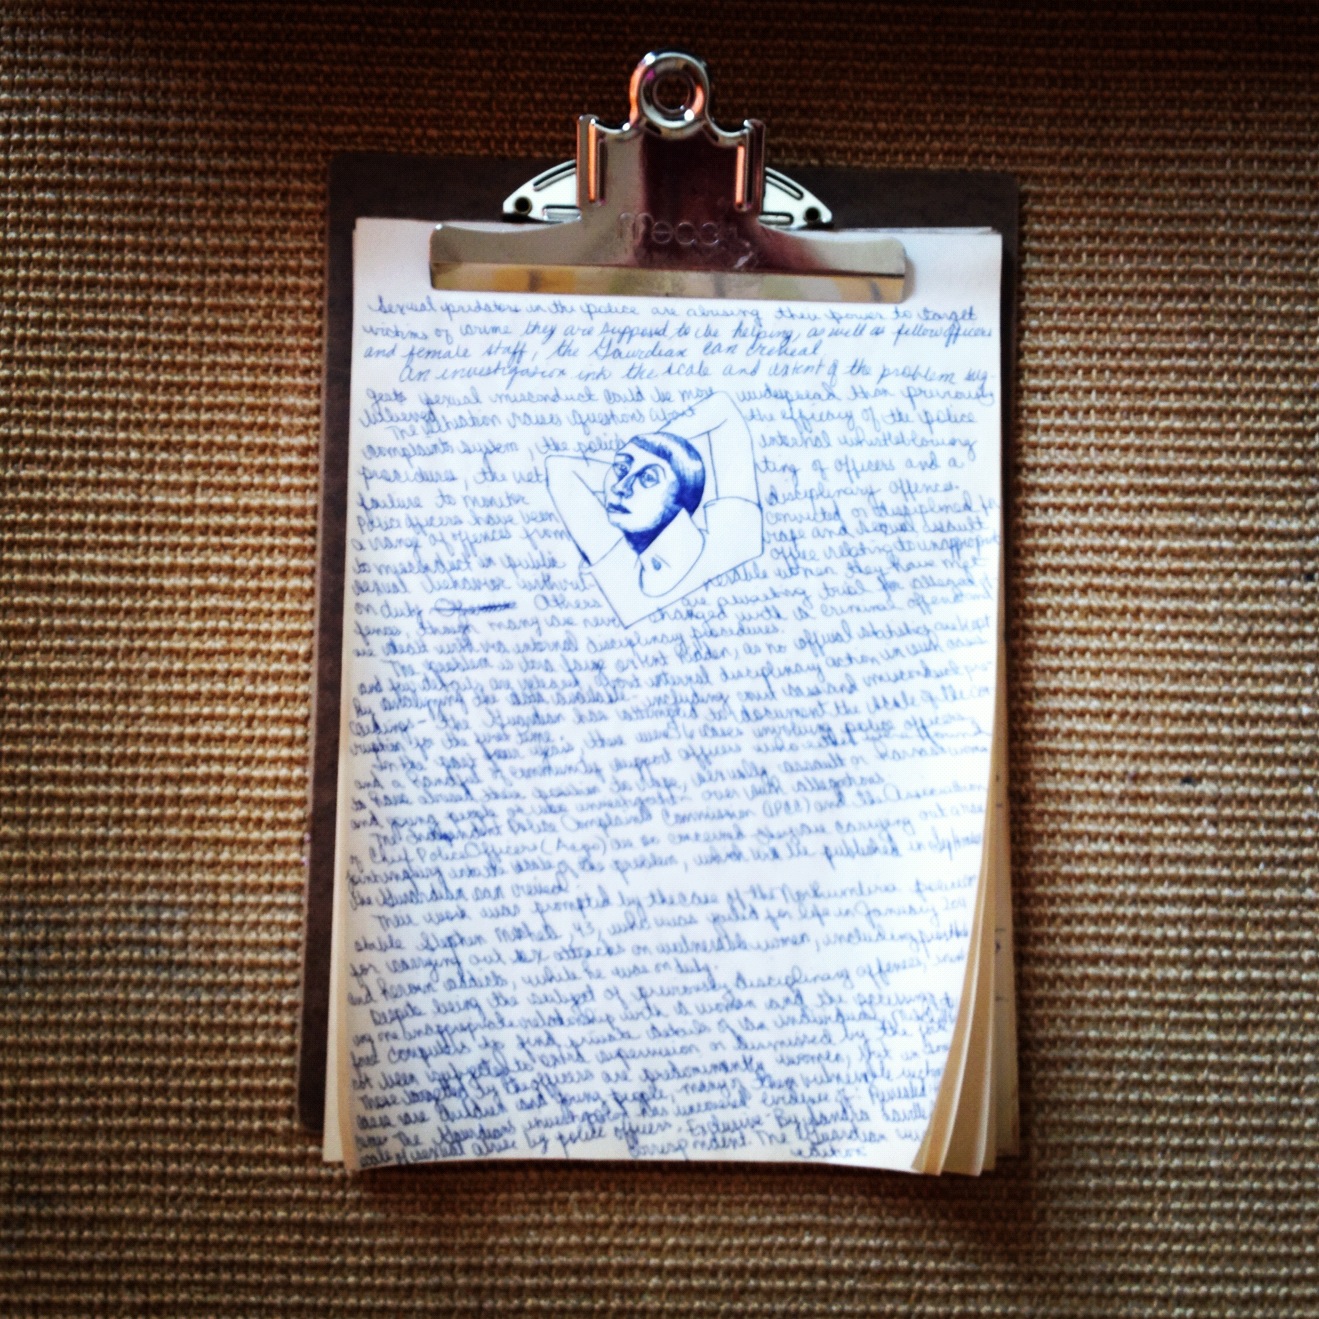 Sexual predators in the police are abusing their power to target
victims of crime they are supposed to be helping, as well as fellow officers
and female staff, the Gaurdian can reveal.
An investigation into the scale and extent of the problem sug
gests sexual misconduct could be more widespread than previously
believed.
The situation raises questions about the efficacy of the police
complaints system, the police internal whistleblowing
procedures, the vet ting of officers and a
failure to monitor disciplinary offences.
Police officers have been convicted or disciplined for
a range of offences from rape and sexual assault
to misconduct in public office relating to inappropriate
sexual behavior with vulnerable women they have met
on duty Others are awaiting trial for alleged of
fences, though many are never charged with a criminal offence and
are dealt with via internal disciplinary procedures.
The problem is to a large extent hidden, as no official statistics are kept
and few details are released about internal disciplinary action in such cases
By analyzing the data available - including court cases and misconduct pro
ceedings - the Guardian has attempted to document the scale of the cor
ruption for the first time.
In the past four years, there were cases involving police officers,
and a handful of community support officers who either were found
to have abused their position to rape, sexually assault or harass women
and young people or were investigated over such allegations.
The Independent Police Complaints Commission (IPCC) and the Association
of Chief Police Officers (Acpo) are so concerned they are carrying out a rare
joint inquiry into the scale of the problem, which will be published in September
the Guardian can reveal.
Their work was prompted by the case of the Northumbria police con
stable Stephen Mitchell, 43, who was jailed for life in January 2011
for carrying out sex attacks on vulnerable women, including prostitutes
and heroin addicts, while he was on duty.
Despite being the subject of previously disciplinary offenses, invol
ving an inappropriate relationship with a woman and the accessing of
computers to find private details of an individual,
not been supervision or dismissed by the force
These targeted by the officers are predominantly women, but in some
cases are children and young people, many of them vulnerable victims
The Guardians investigation has uncovered evidence of Revealed
scale of sexual abuse by police officers. Exclusive By Sandra Laville
correspondent The Guardian
edition